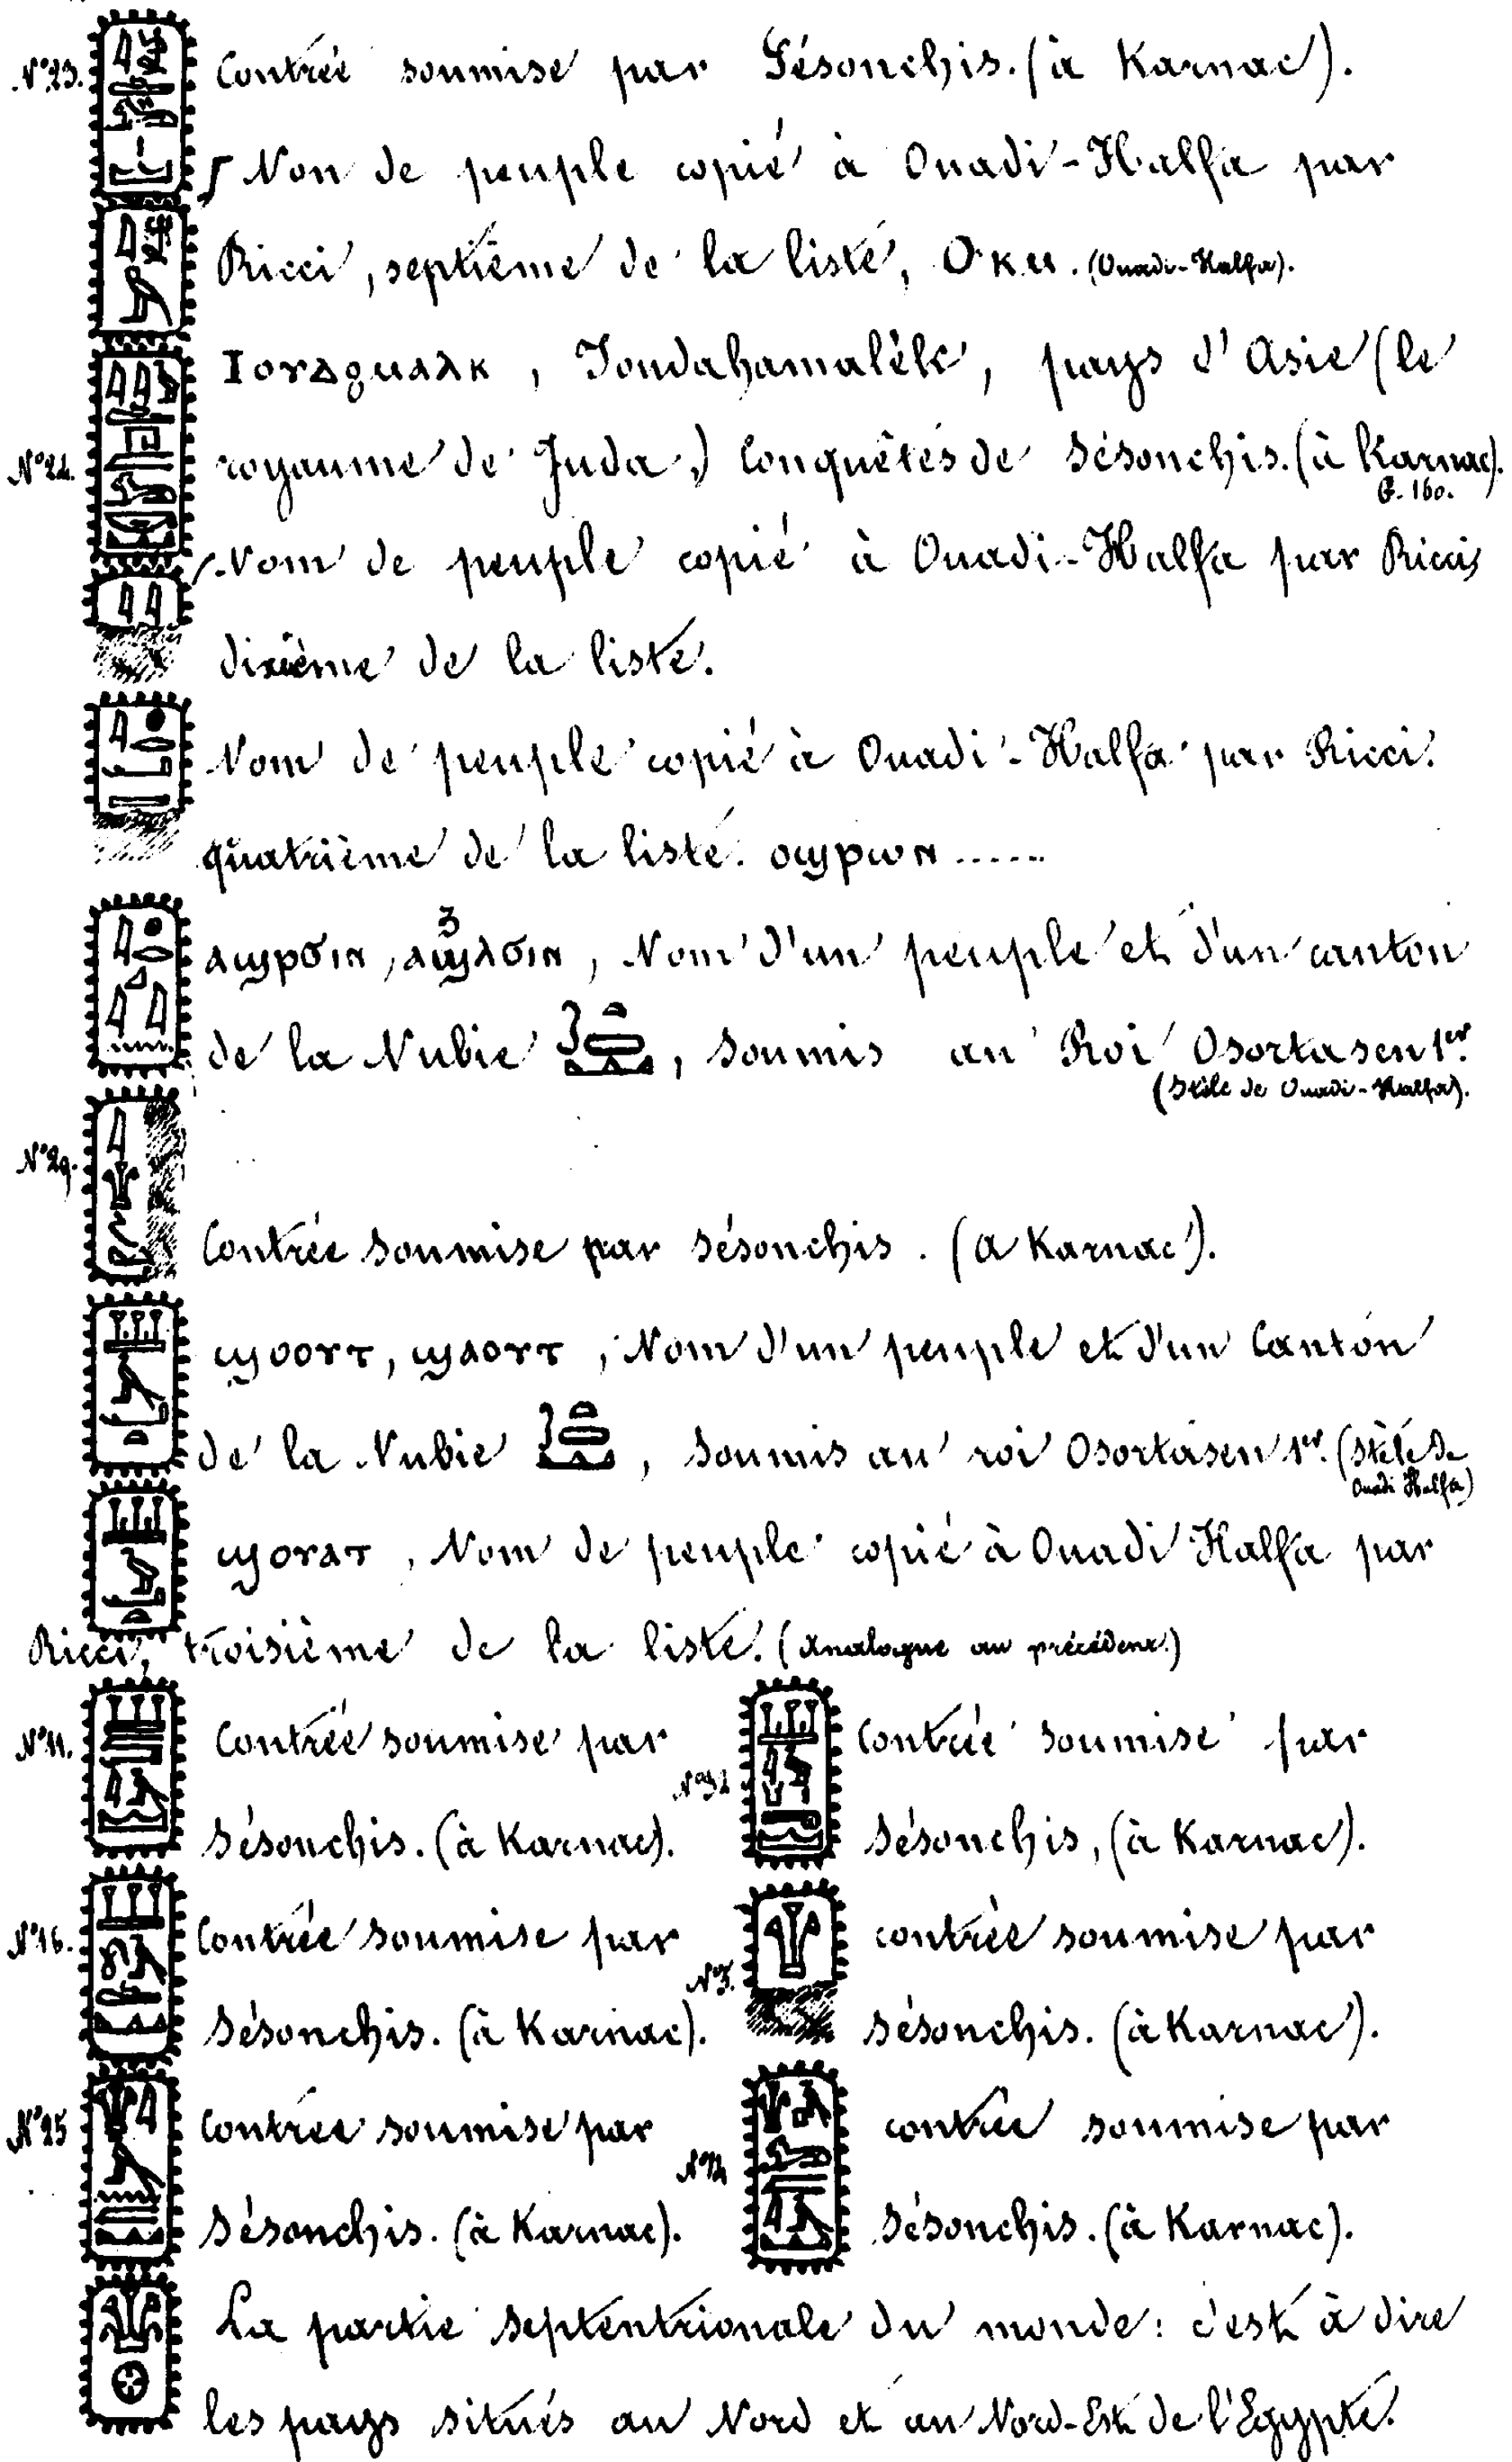 N° 23. Contrée soumise par Sésonchis. (à Karnac).
Nom de peuple copié à Ouadi-Halfa par
Ricci, septième de la liste, (Ouadi-Halfa).
Ⲓⲟⲩⲇϩⲙⲁⲗⲕ, Joudahamalèk, pays d'Asie (le
royaume de Juda,) Conquêtes de Sésonchis. (à Karnac).
G. 160.
Nom de peuple copié à Ouadi-Halfa par Ricci,
dixième de la liste.
Nom de peuple copié à Ouadi-Halfa par Ricci.
quatrième de la liste. ⲟϣⲣⲱⲛ ......
ⲁϣⲣϭⲓⲛ, ⲁϣⲗϭⲓⲛ, Nom d'un peuple et d'un canton
de la Nubie, soumis au Roi Osortasen 1er.
(Stèle de Ouadi-Halfa).
N° 29.
Contrée soumise par Sésonchis. (a Karnac).
ϣⲟⲟⲩⲧ, ϣⲁⲟⲩⲧ, Nom d'un peuple et d'un Canton
de la Nubie, soumis au roi Osortasen 1er. (Stèle de
Ouadi Halfa)
ϣⲟⲩⲁⲧ, Nom de peuple copié à Ouadi Halfa par
Ricci, troisième de la liste. (analogue au précédent.)
N° 11. Contrée soumise par
Sésonchis. (à Karnac).
Contrée soumise par
Sésonchis, (à Karnac).
N° 16. Contrée soumise par
Sésonchis. (à Karnac).
contrée soumise par
Sésonchis. (à Karnac).
N° 25 contrée soumise par
Sésonchis. (à Karnac).
contrée soumise par
Sésonchis. (à Karnac).
La partie septentrionale du monde: c'est à dire
les pays situés au Nord et au Nord-Est de l'Egypte.